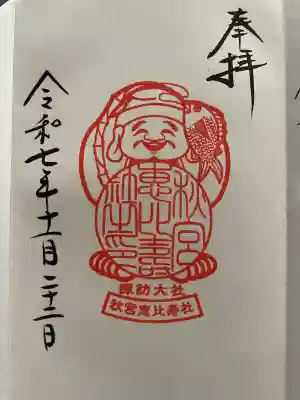 奉拝
秋宮
惠比壽
社之印
諏訪大社
秋宮恵比寿社
令和七年十一月二十二日